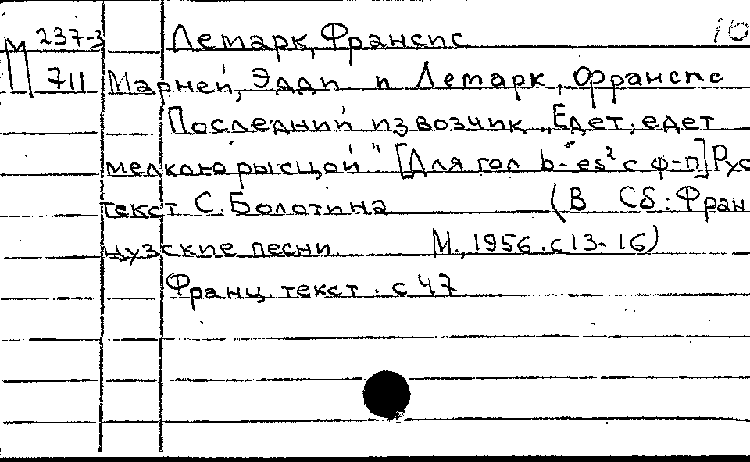 М 237-3 Лемарк, Франсис 10
711 Марней, Эдди и Лемарк, Франсис
Последний извозчик „Едет, едет
мелкою рысцой" [Для гол b-es² с ф-п] Рус
текст С. Болотина (В Сб: Фран
цузские песни М., 1956. с 13-16)
Франц. текст. с 47